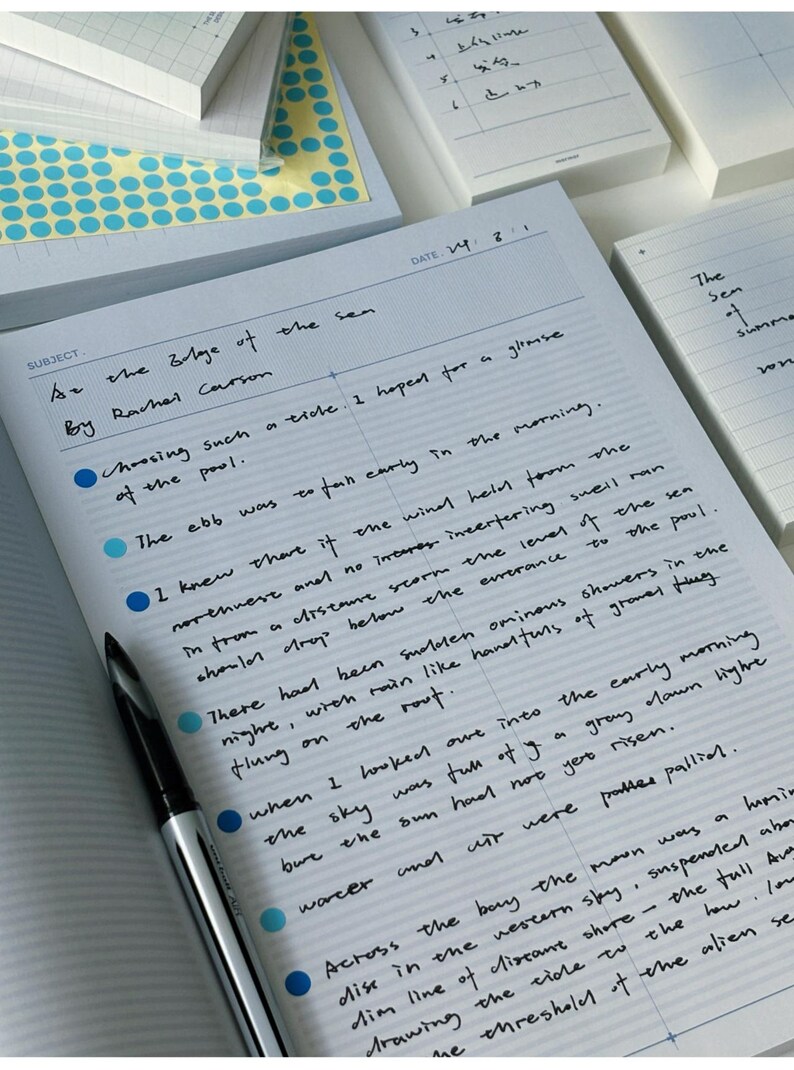 THE S
DESI
3
4
5
6
mormor
DATE. 24 / 3 / 1
SUBJECT.
At the Edge of the sea
By Rachel Carson
choosing such a tide. I hoped for a glimse
of the pool.
The ebb was to fall early in the morning.
I knew that if the wind held from the
northwest and no interes interfering swell ran
in from a distant storm the level of the sea
should drop below the entrance to the pool.
There had been sudden ominous showers in the
night, with rain like handfuls of gravel flug
flung on the roof.
when I looked out into the early morning
the sky was full of a gray dawn light
but the sun had not yet risen.
water and air were pallid.
Across the bay the moon was a lumin
disc in the western sky, suspended abo
dim line of distant shore — the full Aug
drawing the tide to the low, low
he threshold of the alien se
uni-ball AIR
The
Sea
of
summe